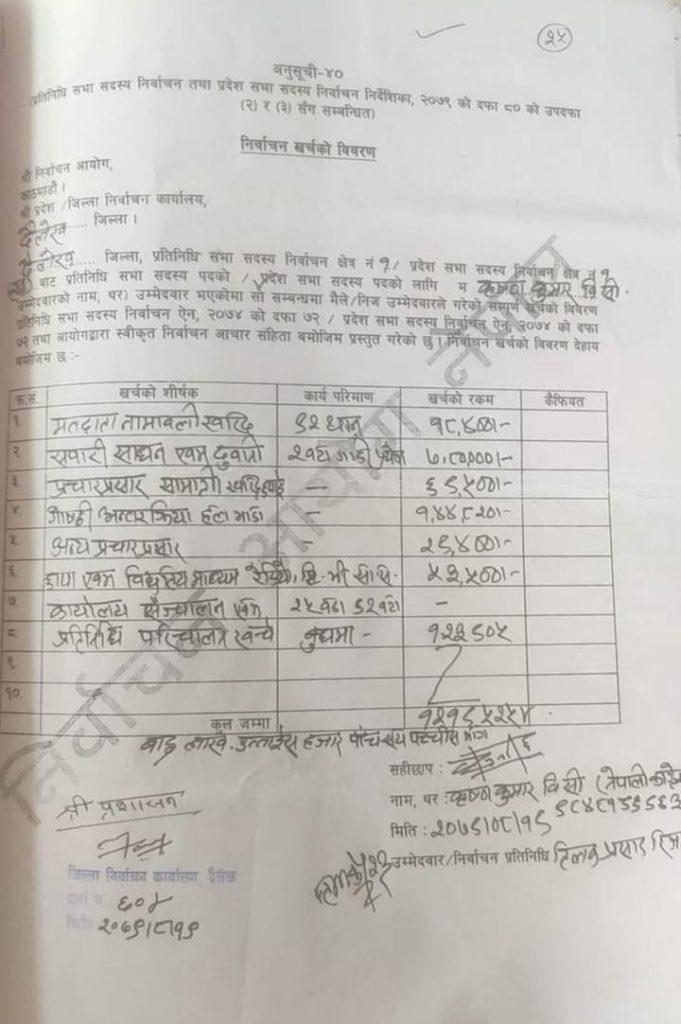 २५
अनुसूची-४०
प्रतिनिधि सभा सदस्य निर्वाचन तथा प्रदेश सभा सदस्य निर्वाचन निर्देशिका, २०७९ को दफा ८० को उपदफा
(२) र (३) सँग सम्बन्धित)
निर्वाचन खर्चको विवरण
श्री निर्वाचन आयोग,
काठमाडौं ।
श्री प्रदेश /जिल्ला निर्वाचन कार्यालय,
दैलेख..... जिल्ला ।
दैलेख..... जिल्ला, प्रतिनिधि सभा सदस्य निर्वाचन क्षेत्र नं १/ प्रदेश सभा सदस्य निर्वाचन क्षेत्र नं १
(ख) बाट प्रतिनिधि सभा सदस्य पदको / प्रदेश सभा सदस्य पदको लागि म कृष्ण कुमार वि सी.
उम्मेदवारको नाम, थर) उम्मेदवार भएकोमा सो सम्बन्धमा मैले/निज उम्मेदवारले गरेको सम्पूर्ण खर्चको विवरण
प्रतिनिधि सभा सदस्य निर्वाचन ऐन, २०७४ को दफा ७२ / प्रदेश सभा सदस्य निर्वाचन ऐन, २०७४ को दफा
७२ तथा आयोगद्वारा स्वीकृत निर्वाचन आचार संहिता बमोजिम प्रस्तुत गरेको छु । निर्वाचन खर्चको विवरण देहाय
बमोजिम छ :-
क्र.सं. खर्चको शीर्षक कार्य परिमाण खर्चको रकम कैफियत
१. मतदाता नामावली खरिद ९२ थान १८,४००।-
२ सवारी साधन एवम् ढुवानी २ वटा गाडी ७,८०,०००।-
३ प्रचारप्रसार सामाग्री - ६९,५००।-
४. गोष्ठी अन्तरक्रिया हल भाडा - १,४४,८२०।-
५. अन्य प्रचारप्रसार - २९,४००।-
६ छापा एवम् विद्युतिय माध्यम रेडियो, टि.भी सी.सि. ५२,५००।-
७ कार्यालय सञ्चालन एवम् २५ वटा ९२ वटा -
८ प्रतिनिधि परिचालन खर्च बुथमा - १२३९०५
९
१०.
कुल जम्मा १२१९५२५।-
बाह्र लाख उन्नाइस हजार पाँच सय पच्चीस मात्र
सहीछाप :
नाम, थर : कृष्ण कुमार वि सी (नेपाली काँग्रेस)
मिति : २०७९।०८।१९
उम्मेदवार/निर्वाचन प्रतिनिधि तिलक प्रसाद
श्री प्रशासन
जिल्ला निर्वाचन कार्यालय, दैलेख
दर्ता नं. ६०४
मिति २०७९।८।१९
निर्वाचन आयोग नेपाल